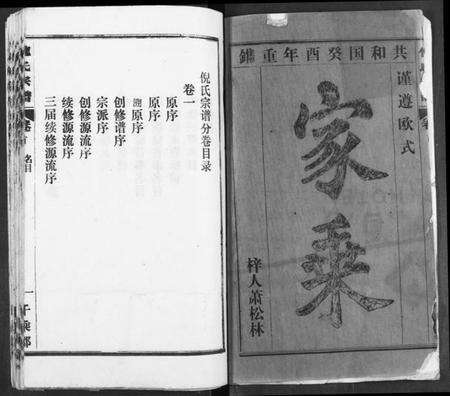 共和国癸酉年重鐫
谨遵欧式
家乘
梓人萧松林
倪氏宗谱分卷目录
卷一
原序
原序
原序
创修谱序
宗派序
创修源流序
续修源流序
三届续修源流序
倪氏宗谱
卷首
名目
一
千乘郡